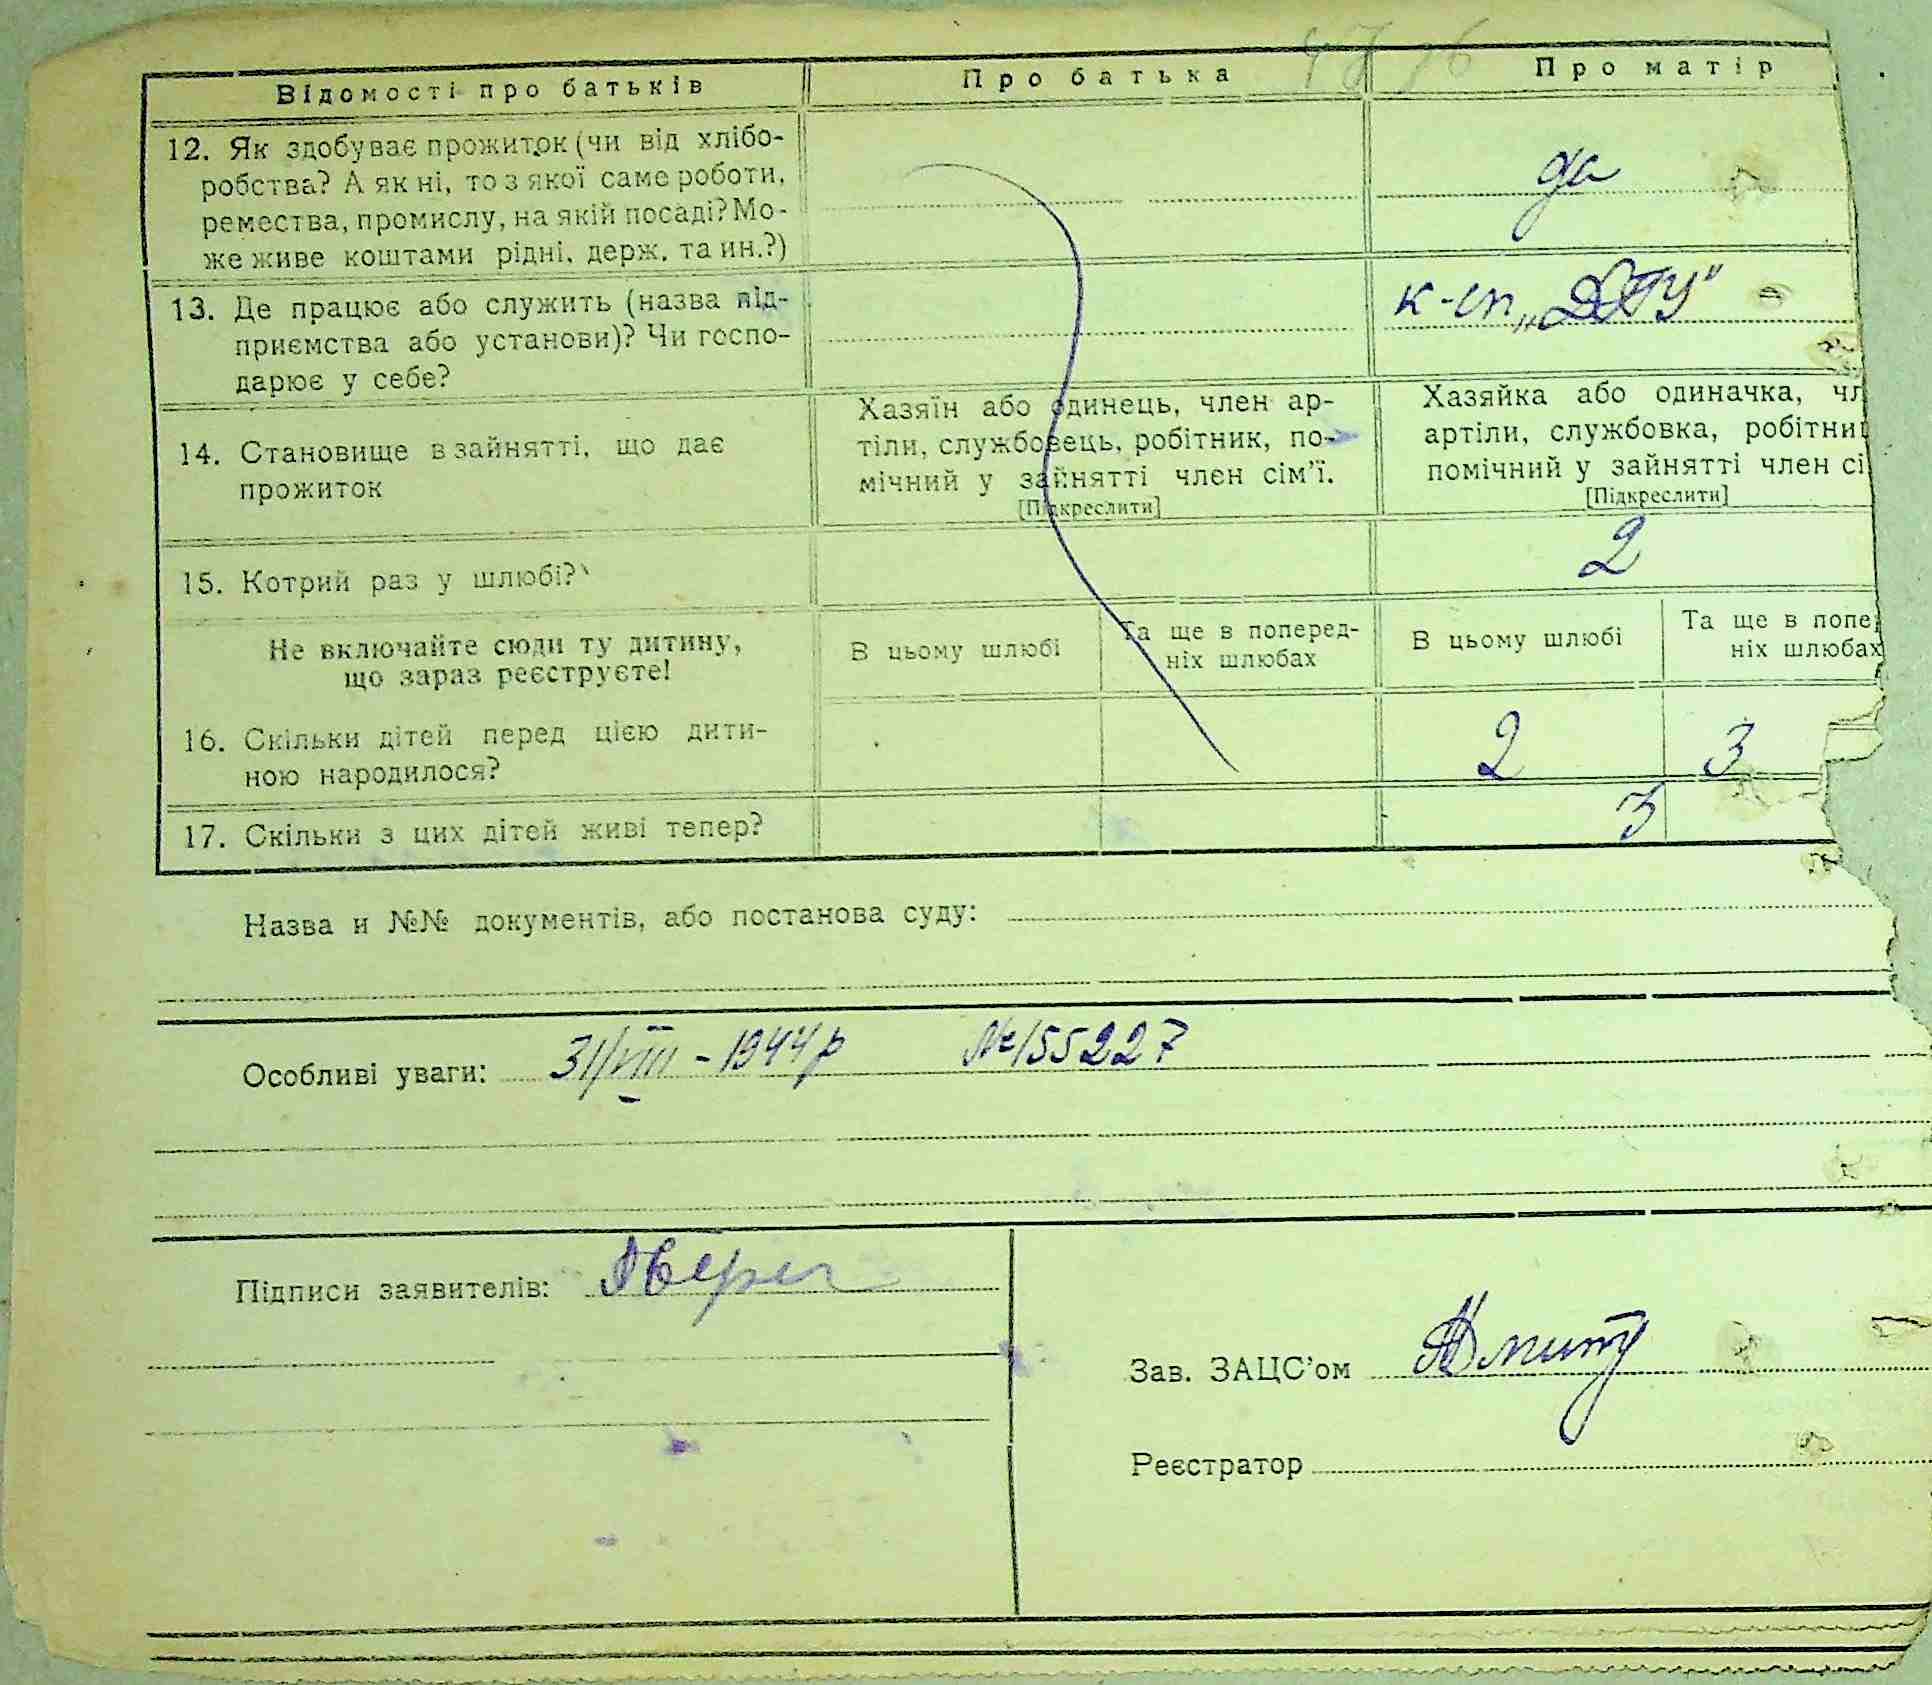 Відомості про батьків
Про батька
Про матір
12. Як здобуває прожиток (чи від хлібо-
робства? А як ні, то з якої саме роботи,
ремества, промислу, на якій посаді? Мо-
же живе коштами рідні, держ. та ин.?)
да
13. Де працює або служить (назва під-
приємства або установи)? Чи госпо-
дарює у себе?
к-сп „ДПУ"
14. Становище в зайнятті, що дає
прожиток
Хазяїн або одинець, член ар-
тіли, службовець, робітник, по-
мічний у зайнятті член сім'ї.
[Підкреслити]
Хазяйка або одиначка, чл
артіли, службовка, робітни
помічний у зайнятті член сі
[Підкреслити]
15. Котрий раз у шлюбі?
2
Не включайте сюди ту дитину,
що зараз реєструєте!
В цьому шлюбі
Та ще в поперед-
ніх шлюбах
В цьому шлюбі
Та ще в попе
ніх шлюбах
16. Скільки дітей перед цією дити-
ною народилося?
2
3
17. Скільки з цих дітей живі тепер?
3
Назва и №№ документів, або постанова суду:
Особливі уваги: 31/VIII - 1944 р №155227
Підписи заявителів:
Зав. ЗАЦС'ом
Реєстратор